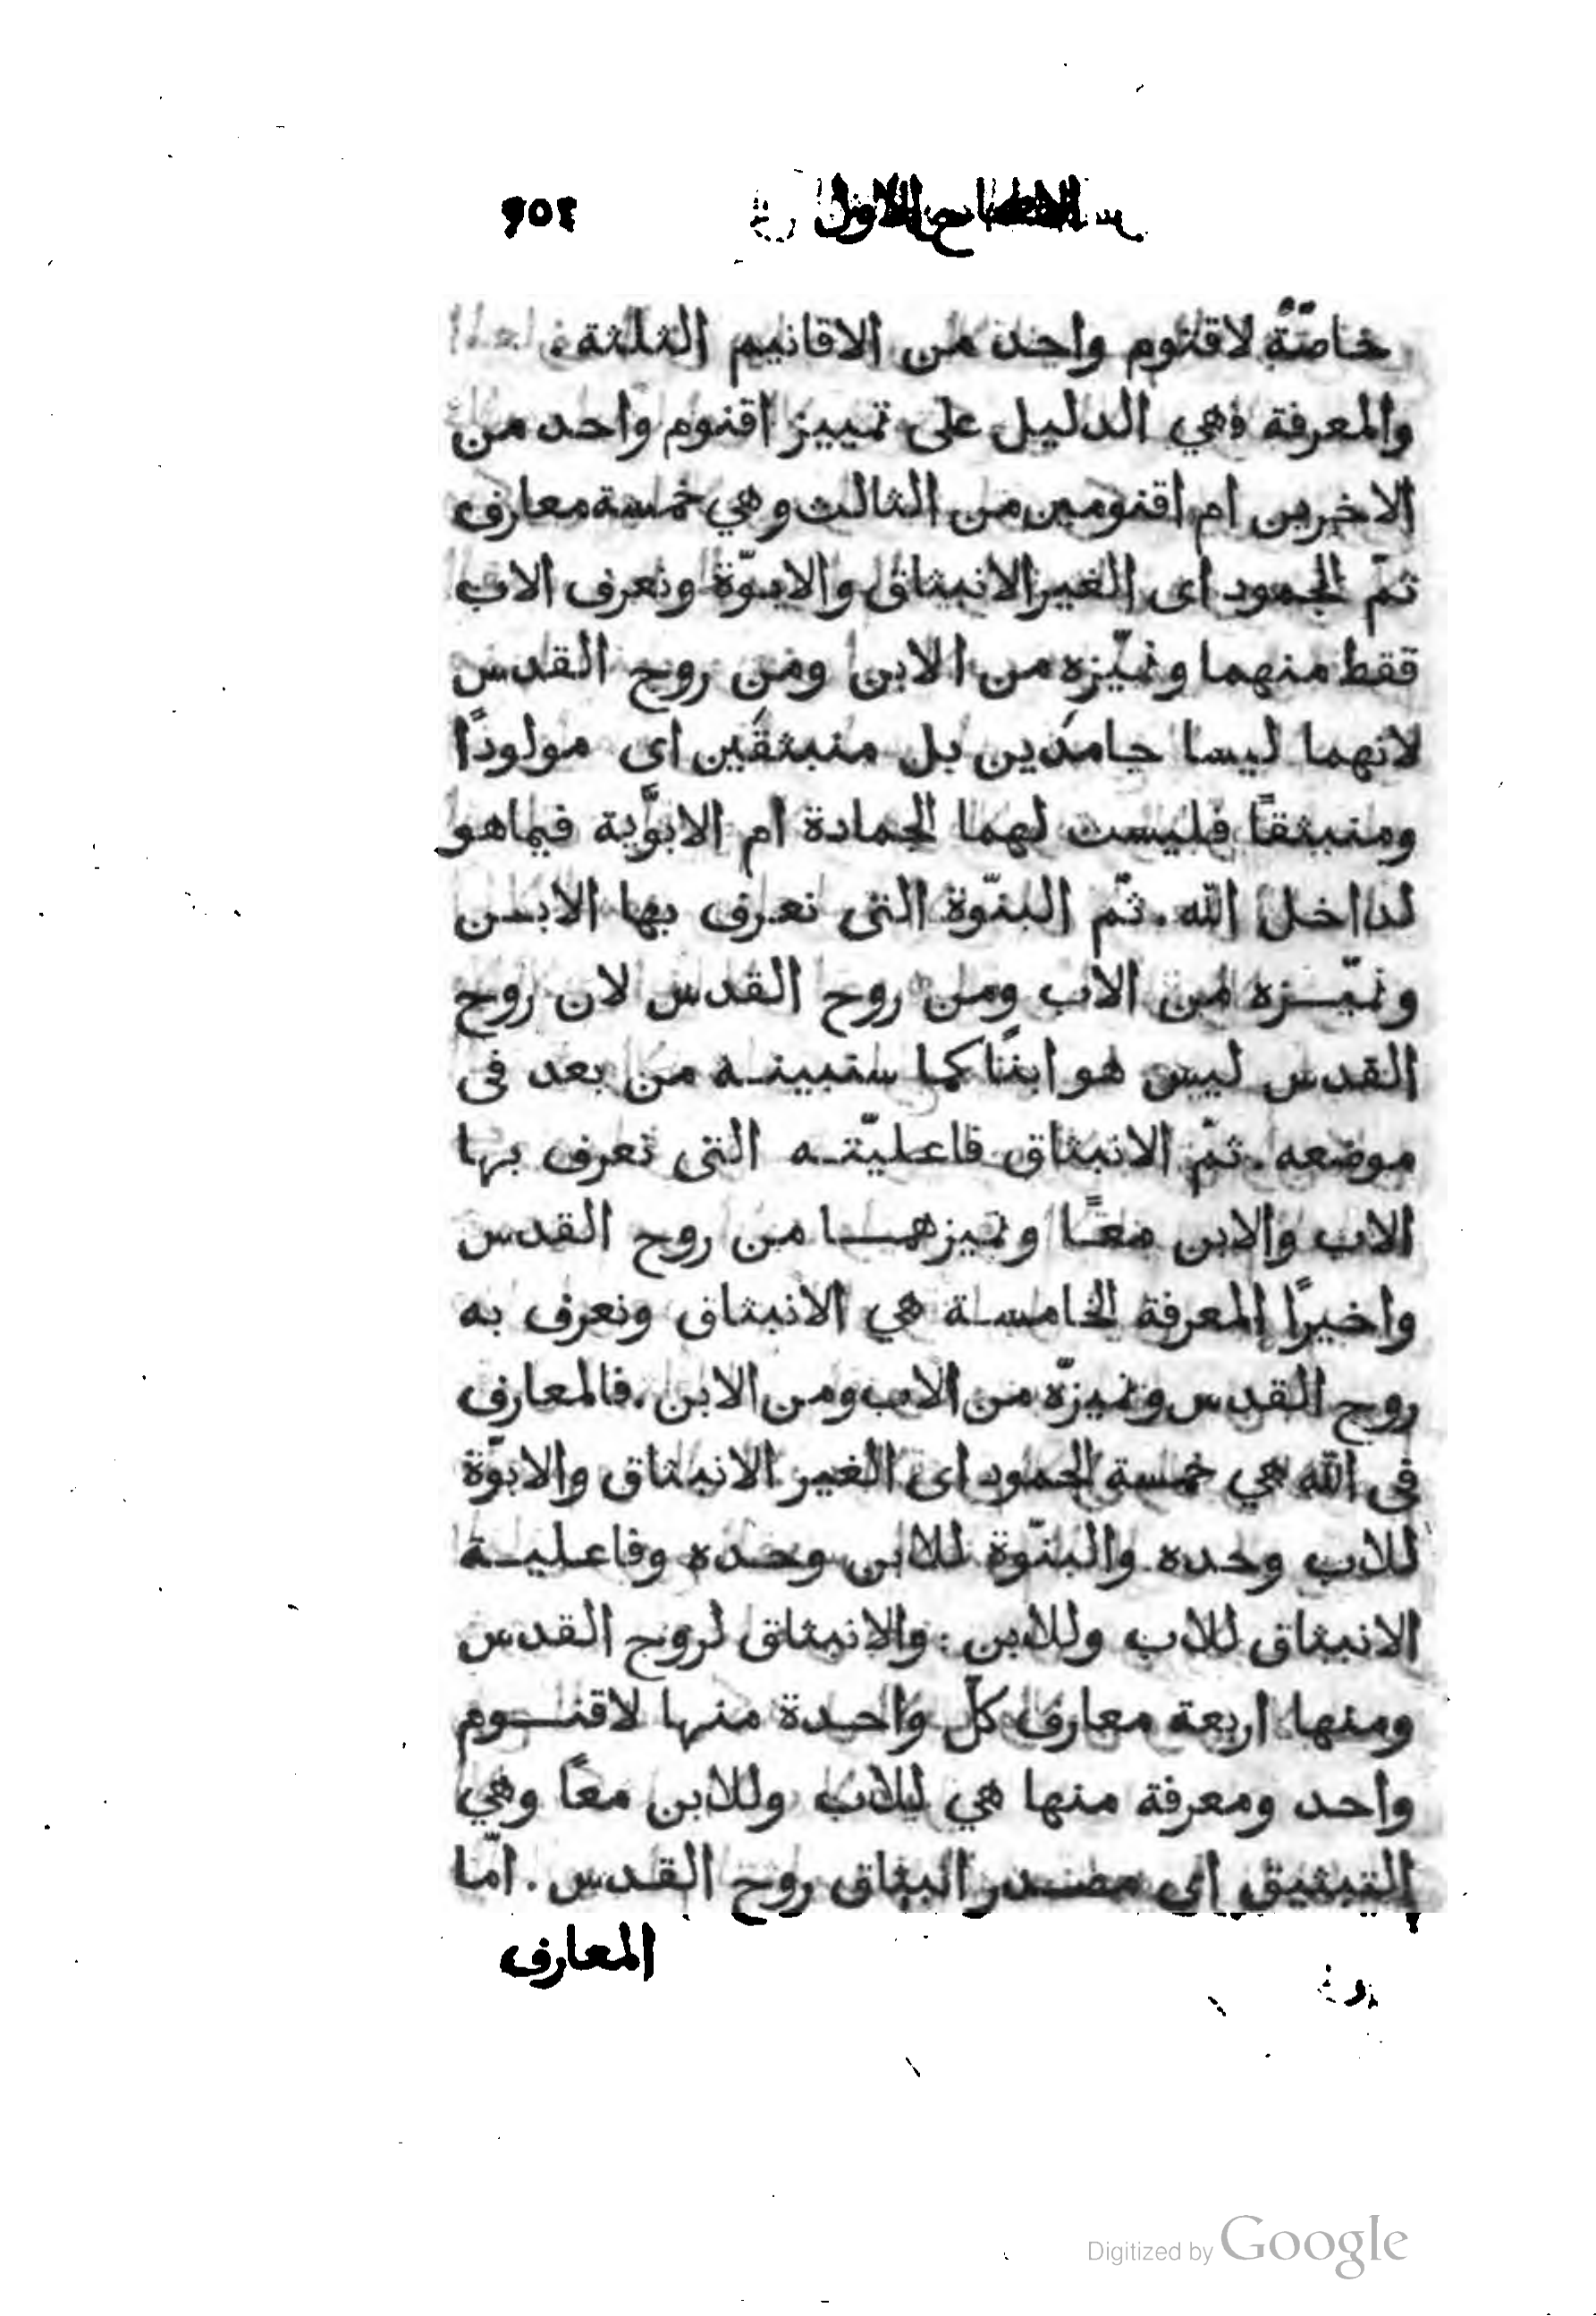 الاول
خاصّةً لاقنوم واحد من الاقانيم الثلثة.
والمعرفة فهي الدليل على تمييز اقنوم واحد من
الاخرين ام اقنومين من الثالث وهي خمسة معارف
ثمّ الجمود اى الغير الانبثاق والابوّة ونعرف الاب
فقط منهما ونميّزه من الابن ومن روح القدس
لانهما ليسا جامدَين بل منبثقَين اى مولودًا
ومنبثقًا فليست لهما الجمادة ام الابوّية فيماهو
لداخل الله. ثمّ البنوّة التى نعرف بها الابن
ونميّزه من الاب ومن روح القدس لان روح
القدس ليس هو ابنًا كما سنبينه من بعد فى
موضعه. ثمّ الانبثاق فاعليّته التى نعرف بها
الاب والابن معًا ونميزهما من روح القدس
واخيرًا المعرفة الخامسة هي الانبثاق ونعرف به
روح القدس ونميزّه من الاب ومن الابن. فالمعارف
فى الله هي خمسة الجمود اى الغير الانبثاق والابوّة
للاب وحده والبنوّة للابن وحده وفاعلية
الانبثاق للاب وللابن. والانبثاق لروح القدس
ومنها اربعة معارف كلّ واحدة منها لاقنوم
واحد ومعرفة منها هي للاب وللابن معًا وهي
التبثيق اى مصدر انبثاق روح القدس. امّا
المعارف
Digitized by Google